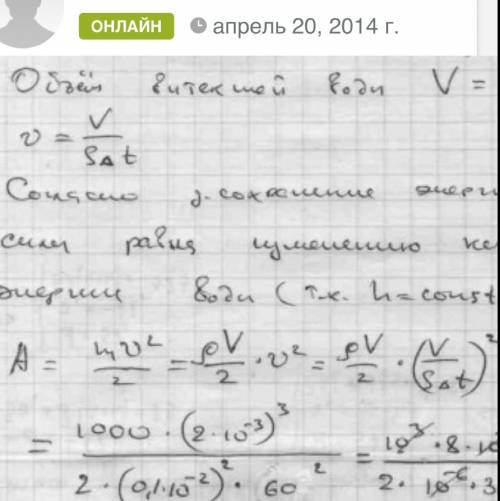 ОНЛАЙН апрель 20, 2014 г.
Объём витекшой води V =
v = V/(SΔt)
Согласно з. сохранение энерги
сили равна изменению ке
энергии води (т.к. h = const
A = mv²/2 = ρV/2 · v² = ρV/2 · (V/(SΔt))²
= 1000 · (2·10⁻³)³ / (2 · (0,1·10⁻²)² · 60²) = 10³ · 8 · 10 / (2 · 10⁻⁶ · 3